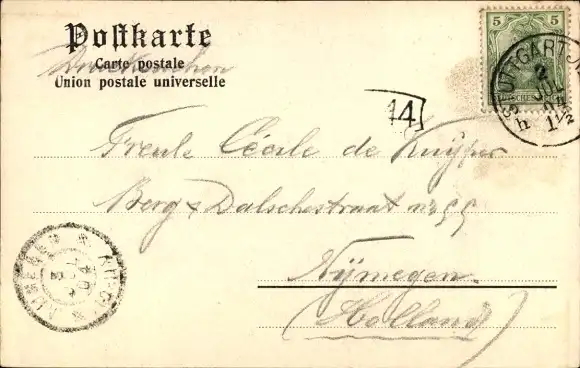 Postkarte
Carte postale
Drucksachen
Union postale universelle
5 5
STUTTGART
2
JUL
04
1 1/2
14
Freule Cécile de Kuÿper
Berg & Dalschestraat no 99
Nÿmegen
(Holland)
NIJMEGEN